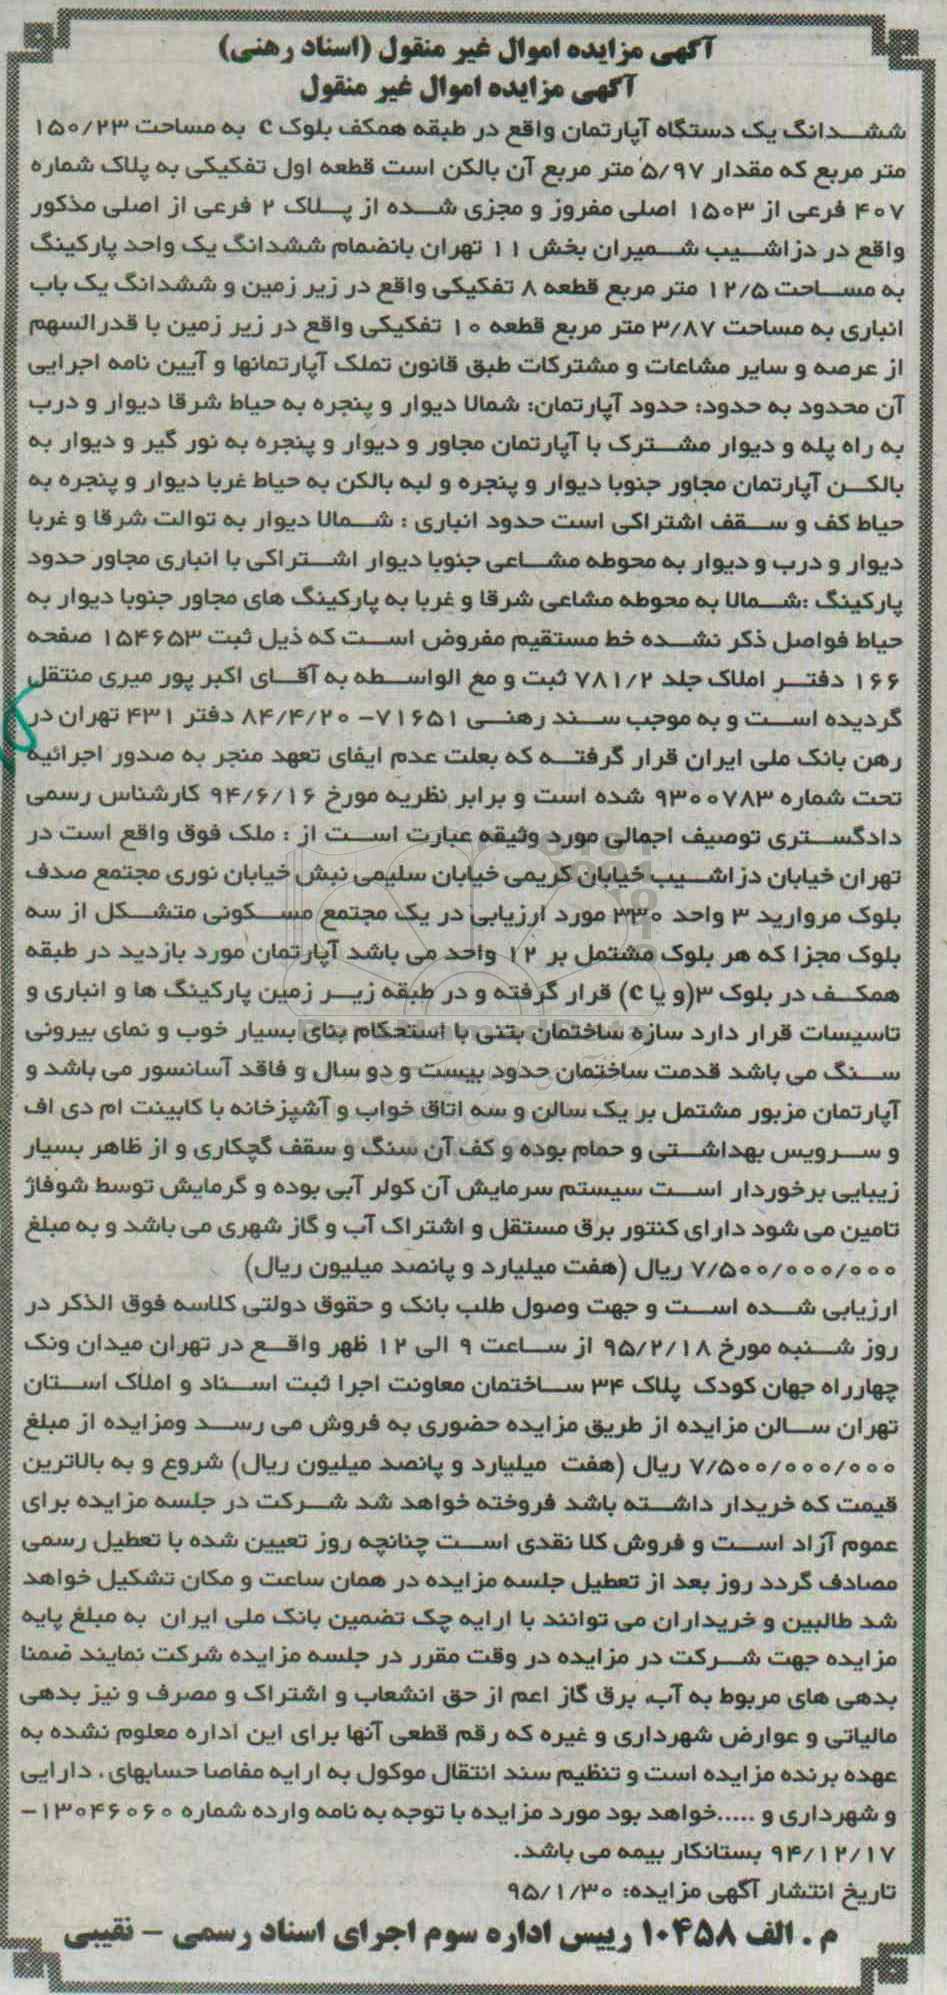 آگهی مزایده اموال غیر منقول (اسناد رهنی)
آگهی مزایده اموال غیر منقول
ششدانگ یک دستگاه آپارتمان واقع در طبقه همکف بلوک c به مساحت ۱۵۰/۲۳
متر مربع که مقدار ۵/۹۷ متر مربع آن بالکن است قطعه اول تفکیکی به پلاک شماره
۴۰۷ فرعی از ۱۵۰۳ اصلی مفروز و مجزی شده از پلاک ۲ فرعی از اصلی مذکور
واقع در دزاشیب شمیران بخش ۱۱ تهران بانضمام ششدانگ یک واحد پارکینگ
به مساحت ۱۲/۵ متر مربع قطعه ۸ تفکیکی واقع در زیر زمین و ششدانگ یک باب
انباری به مساحت ۳/۸۷ متر مربع قطعه ۱۰ تفکیکی واقع در زیر زمین با قدرالسهم
از عرصه و سایر مشاعات و مشترکات طبق قانون تملک آپارتمانها و آیین نامه اجرایی
آن محدود به حدود: حدود آپارتمان: شمالا دیوار و پنجره به حیاط شرقا دیوار و درب
به راه پله و دیوار مشترک با آپارتمان مجاور و دیوار و پنجره به نور گیر و دیوار به
بالکن آپارتمان مجاور جنوبا دیوار و پنجره و لبه بالکن به حیاط غربا دیوار و پنجره به
حیاط کف و سقف اشتراکی است حدود انباری : شمالا دیوار به توالت شرقا و غربا
دیوار و درب و دیوار به محوطه مشاعی جنوبا دیوار اشتراکی با انباری مجاور حدود
پارکینگ :شمالا به محوطه مشاعی شرقا و غربا به پارکینگ های مجاور جنوبا دیوار به
حیاط فواصل ذکر نشده خط مستقیم مفروض است که ذیل ثبت ۱۵۴۶۵۳ صفحه
۱۶۶ دفتر املاک جلد ۷۸۱/۲ ثبت و مع الواسطه به آقای اکبر پور میری منتقل
گردیده است و به موجب سند رهنی ۷۱۶۵۱- ۸۴/۴/۲۰ دفتر ۴۳۱ تهران در
رهن بانک ملی ایران قرار گرفته که بعلت عدم ایفای تعهد منجر به صدور اجرائیه
تحت شماره ۹۳۰۰۷۸۳ شده است و برابر نظریه مورخ ۹۴/۶/۱۶ کارشناس رسمی
دادگستری توصیف اجمالی مورد وثیقه عبارت است از : ملک فوق واقع است در
تهران خیابان دزاشیب خیابان کریمی خیابان سلیمی نبش خیابان نوری مجتمع صدف
بلوک مروارید ۳ واحد ۳۳۰ مورد ارزیابی در یک مجتمع مسکونی متشکل از سه
بلوک مجزا که هر بلوک مشتمل بر ۱۲ واحد می باشد آپارتمان مورد بازدید در طبقه
همکف در بلوک ۳(و یا c) قرار گرفته و در طبقه زیر زمین پارکینگ ها و انباری و
تاسیسات قرار دارد سازه ساختمان بتنی با استحکام بنای بسیار خوب و نمای بیرونی
سنگ می باشد قدمت ساختمان حدود بیست و دو سال و فاقد آسانسور می باشد و
آپارتمان مزبور مشتمل بر یک سالن و سه اتاق خواب و آشپزخانه با کابینت ام دی اف
و سرویس بهداشتی و حمام بوده و کف آن سنگ و سقف گچکاری و از ظاهر بسیار
زیبایی برخوردار است سیستم سرمایش آن کولر آبی بوده و گرمایش توسط شوفاژ
تامین می شود دارای کنتور برق مستقل و اشتراک آب و گاز شهری می باشد و به مبلغ
۷/۵۰۰/۰۰۰/۰۰۰ ریال (هفت میلیارد و پانصد میلیون ریال)
ارزیابی شده است و جهت وصول طلب بانک و حقوق دولتی کلاسه فوق الذکر در
روز شنبه مورخ ۹۵/۲/۱۸ از ساعت ۹ الی ۱۲ ظهر واقع در تهران میدان ونک
چهارراه جهان کودک پلاک ۳۴ ساختمان معاونت اجرا ثبت اسناد و املاک استان
تهران سالن مزایده از طریق مزایده حضوری به فروش می رسد ومزایده از مبلغ
۷/۵۰۰/۰۰۰/۰۰۰ ریال (هفت میلیارد و پانصد میلیون ریال) شروع و به بالاترین
قیمت که خریدار داشته باشد فروخته خواهد شد شرکت در جلسه مزایده برای
عموم آزاد است و فروش کلا نقدی است چنانچه روز تعیین شده با تعطیل رسمی
مصادف گردد روز بعد از تعطیل جلسه مزایده در همان ساعت و مکان تشکیل خواهد
شد طالبین و خریداران می توانند با ارایه چک تضمین بانک ملی ایران به مبلغ پایه
مزایده جهت شرکت در مزایده در وقت مقرر در جلسه مزایده شرکت نمایند ضمنا
بدهی های مربوط به آب، برق گاز اعم از حق انشعاب و اشتراک و مصرف و نیز بدهی
مالیاتی و عوارض شهرداری و غیره که رقم قطعی آنها برای این اداره معلوم نشده به
عهده برنده مزایده است و تنظیم سند انتقال موکول به ارایه مفاصا حسابهای . دارایی
و شهرداری و .....خواهد بود مورد مزایده با توجه به نامه وارده شماره ۱۳۰۴۶۰۶۰-
۹۴/۱۲/۱۷ بستانکار بیمه می باشد.
تاریخ انتشار آگهی مزایده: ۹۵/۱/۳۰
م . الف ۱۰۴۵۸ رییس اداره سوم اجرای اسناد رسمی - نقیبی